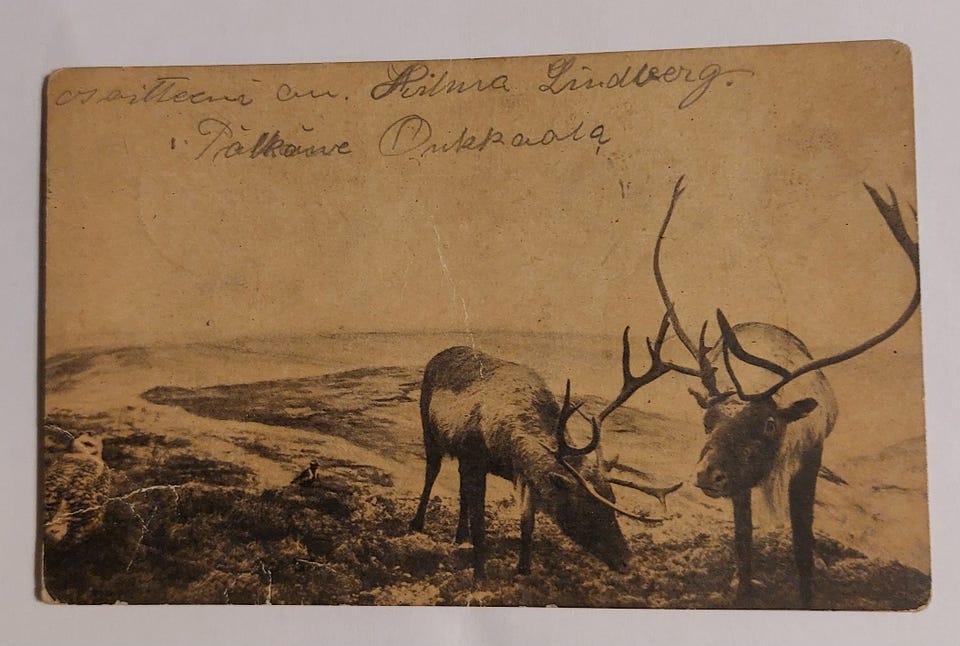 osoitteeni on. Hilma Lindberg.
Pälkäne Onkkaala